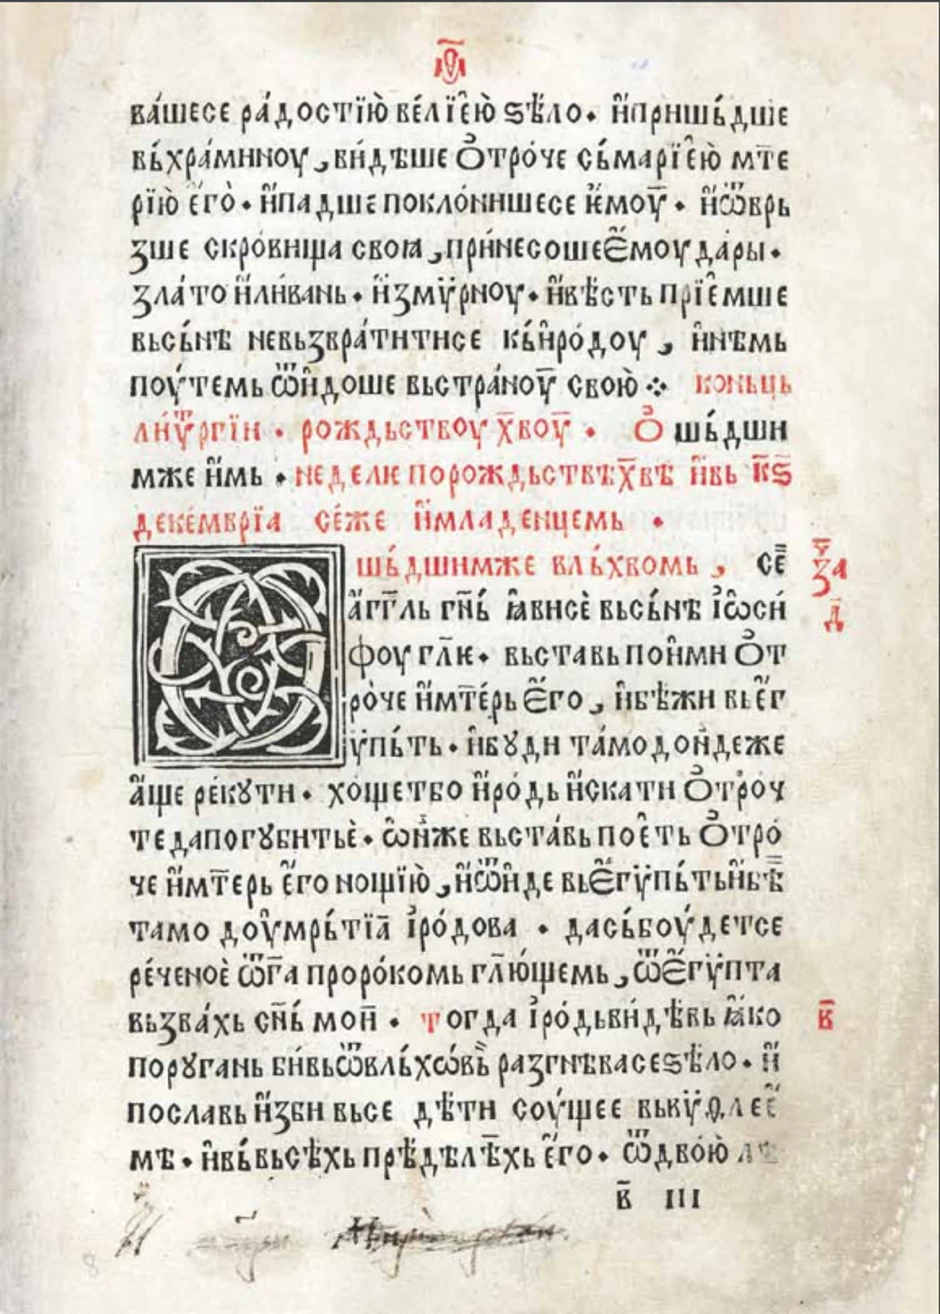 вашесе ра́достїю ве́лїею ѕѣ́ло· и҆пришь́дше
вь́хра́миноу, ви́дѣше Ѻтро́че сь́марїею мт҃е
рїю его̀· и҆падше покло́нишесе е҆моу· и҆ѿврь
зше скро́вища своꙗ, при́несоше емоу да́ры·
зла́то и҆ли́вань· и҆змѵ́рноу· и҆вѣ́сть прїемше
вьсь́нѣ невьзвра́титисе кь́и҆ро́доу, и҆нѣмь
поу́темь ѿи҆доше вьстра́ноу свою̀ ⁘ коньць
лиѵ҆ргїи· рождьствоу х҃воу· Ѻ шь́дши
мже и҆мь· неделꙗ порождьствѣх҃вѣ и҆вь к҃ѕ
деке́мврїа се́же и҆младенцемь·
шь́дшимже вль́хвомь, се
а҆гг҃ль гн҃ь ꙗ҆висѐ вьсь́нѣ і҆ѡси́
фоу гл҃ѥ· вьставь пои҆ми Ѻт
ро̀че и҆мт҃е́рь его, и҆бѣ́жи вь ег
ѵ́пь́ть· и҆бꙋди та́мо до́ндеже
а҆ще ре́кꙋти· хо́щетбо и҆ро́дь и҆скати Ѻтро́ч
те дапогꙋбитьѐ· ѡн҆же вьста́вь поеть Ѻтро́
че и҆мт҃ерь его нощїю̀, и҆ѿи҆де вьегѵ́пь́ть и҆бѣ̀
тамо доу҆мрь́тїа і҆ро́дова· дась́боу́детсе
ре́ченоѐ ѿг҃а проро́комь гл҃ю́щемь, ѿегѵ́пта
вьзва́хь сн҃ь мои҆· тогда і҆ро́дьви́дѣвь ꙗ҆ко
порꙋгань би́вьѿвль́хѡ́вь разгнѣвасе ѕѣ́ло· и҆
пославь и҆зби вьсе дѣ́ти соу́щее вьвѵ́ѳлее
мѣ· и҆вь́вьсѣ́хь прѣ́дѣлѣ́хь его· ѿдво́ю
в҃ III
з҃а
д҃
в҃
8